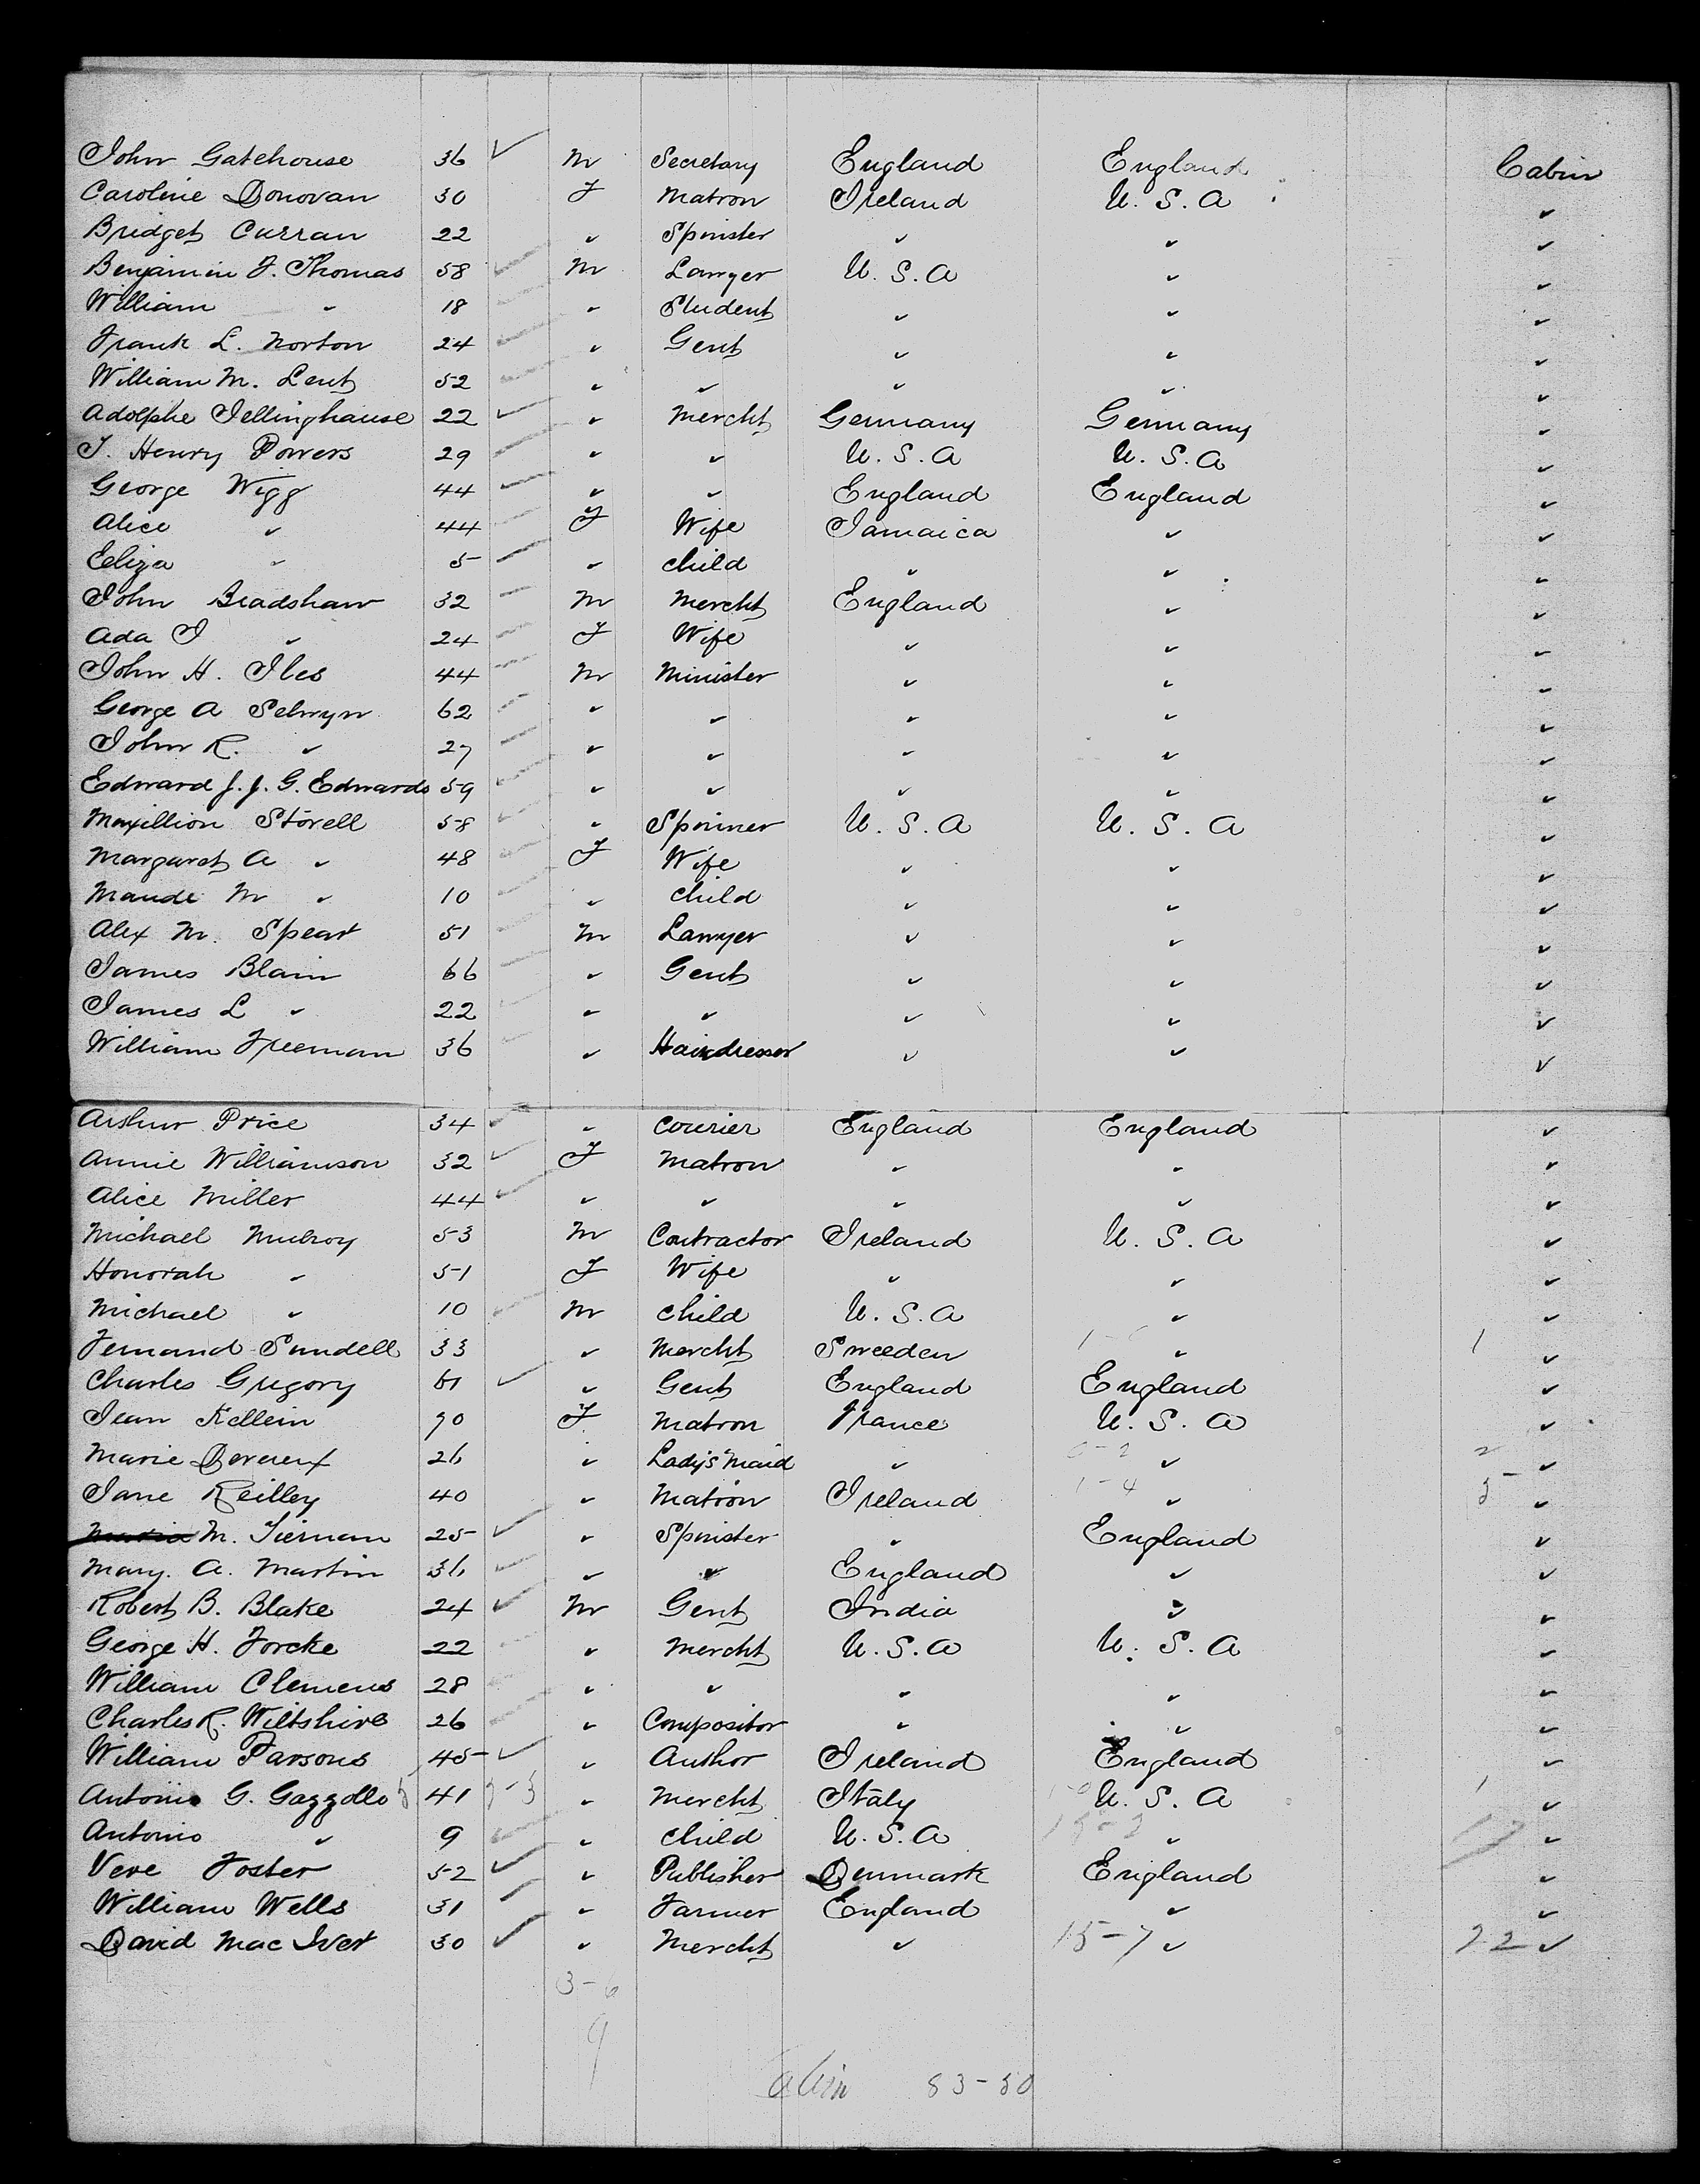 John Gatehouse 36 ✓ M Secretary England England Cabin
Caroline Donovan 30 F Matron Ireland U.S.A ✓
Bridget Curran 22 ✓ Spinster ✓ ✓ ✓
Benjamin F. Thomas 58 ✓ M Lawyer U.S.A ✓ ✓
William ✓ 18 ✓ Student ✓ ✓ ✓
Frank L. Norton 24 ✓ Gent ✓ ✓ ✓
William M. Lent 52 ✓ ✓ ✓ ✓ ✓
Adolphe Tellinghause 22 ✓ ✓ Mercht Germany Germany ✓
J. Henry Powers 29 ✓ ✓ U.S.A U.S.A ✓
George Wigg 44 ✓ ✓ England England ✓
Alice ✓ 44 F Wife Jamaica ✓ ✓
Eliza ✓ 5 ✓ child ✓ ✓ ✓
John Bradshaw 32 M Mercht England ✓ ✓
Ada J ✓ 24 F Wife ✓ ✓ ✓
John H. Iles 44 M Minister ✓ ✓ ✓
George A Selwyn 62 ✓ ✓ ✓ ✓ ✓
John R. ✓ 27 ✓ ✓ ✓ ✓ ✓
Edward J. J. G. Edwards 59 ✓ ✓ ✓ ✓ ✓
Maxillion Storell 58 ✓ Spinner U.S.A U.S.A ✓
Margaret A ✓ 48 F Wife ✓ ✓ ✓
Maude M ✓ 10 ✓ child ✓ ✓ ✓
Alex M. Spear 51 M Lawyer ✓ ✓ ✓
James Blain 66 ✓ Gent ✓ ✓ ✓
James L ✓ 22 ✓ ✓ ✓ ✓ ✓
William Freeman 36 ✓ Hairdresser ✓ ✓ ✓
Arthur Price 34 ✓ ✓ Courier England England ✓
Annie Williamson 32 ✓ F Matron ✓ ✓ ✓
Alice Miller 44 ✓ ✓ ✓ ✓ ✓ ✓
Michael Mulroy 53 M Contractor Ireland U.S.A ✓
Honorah ✓ 51 F Wife ✓ ✓ ✓
Michael ✓ 10 M child U.S.A ✓ ✓
Fernand Sundell 33 ✓ Mercht Sweeden ✓ 1 ✓
Charles Gregory 61 ✓ ✓ Gent England England ✓
Jean Kellein 70 F Matron France U.S.A ✓
Marie Dereux 26 ✓ Lady's Maid ✓ ✓ 2 ✓
Jane Reilley 40 ✓ Matron Ireland 1-4 ✓ ✓
M. Tiernan 25 ✓ ✓ Spinster ✓ England ✓
Mary. A. Martin 36 ✓ ✓ ✓ England ✓ ✓
Robert B. Blake 24 ✓ M Gent India ✓ ✓
George H. Forcke 22 ✓ Mercht U.S.A U.S.A ✓
William Clemens 28 ✓ ✓ ✓ ✓ ✓
Charles R. Wiltshire 26 ✓ Compositor ✓ ✓ ✓
William Parsons 45 ✓ ✓ Author Ireland England ✓
Antonio G. Gazzollo 41 ✓ Mercht Italy U.S.A 1 ✓
Antonio ✓ 9 ✓ child U.S.A ✓ ✓
Vere Foster 52 ✓ ✓ Publisher Denmark England ✓
William Wells 31 ✓ ✓ Farmer England ✓ ✓
David Mac Iver 30 ✓ ✓ Mercht ✓ 15-7 ✓ 22 ✓
3-6
9
Cabin 83-50